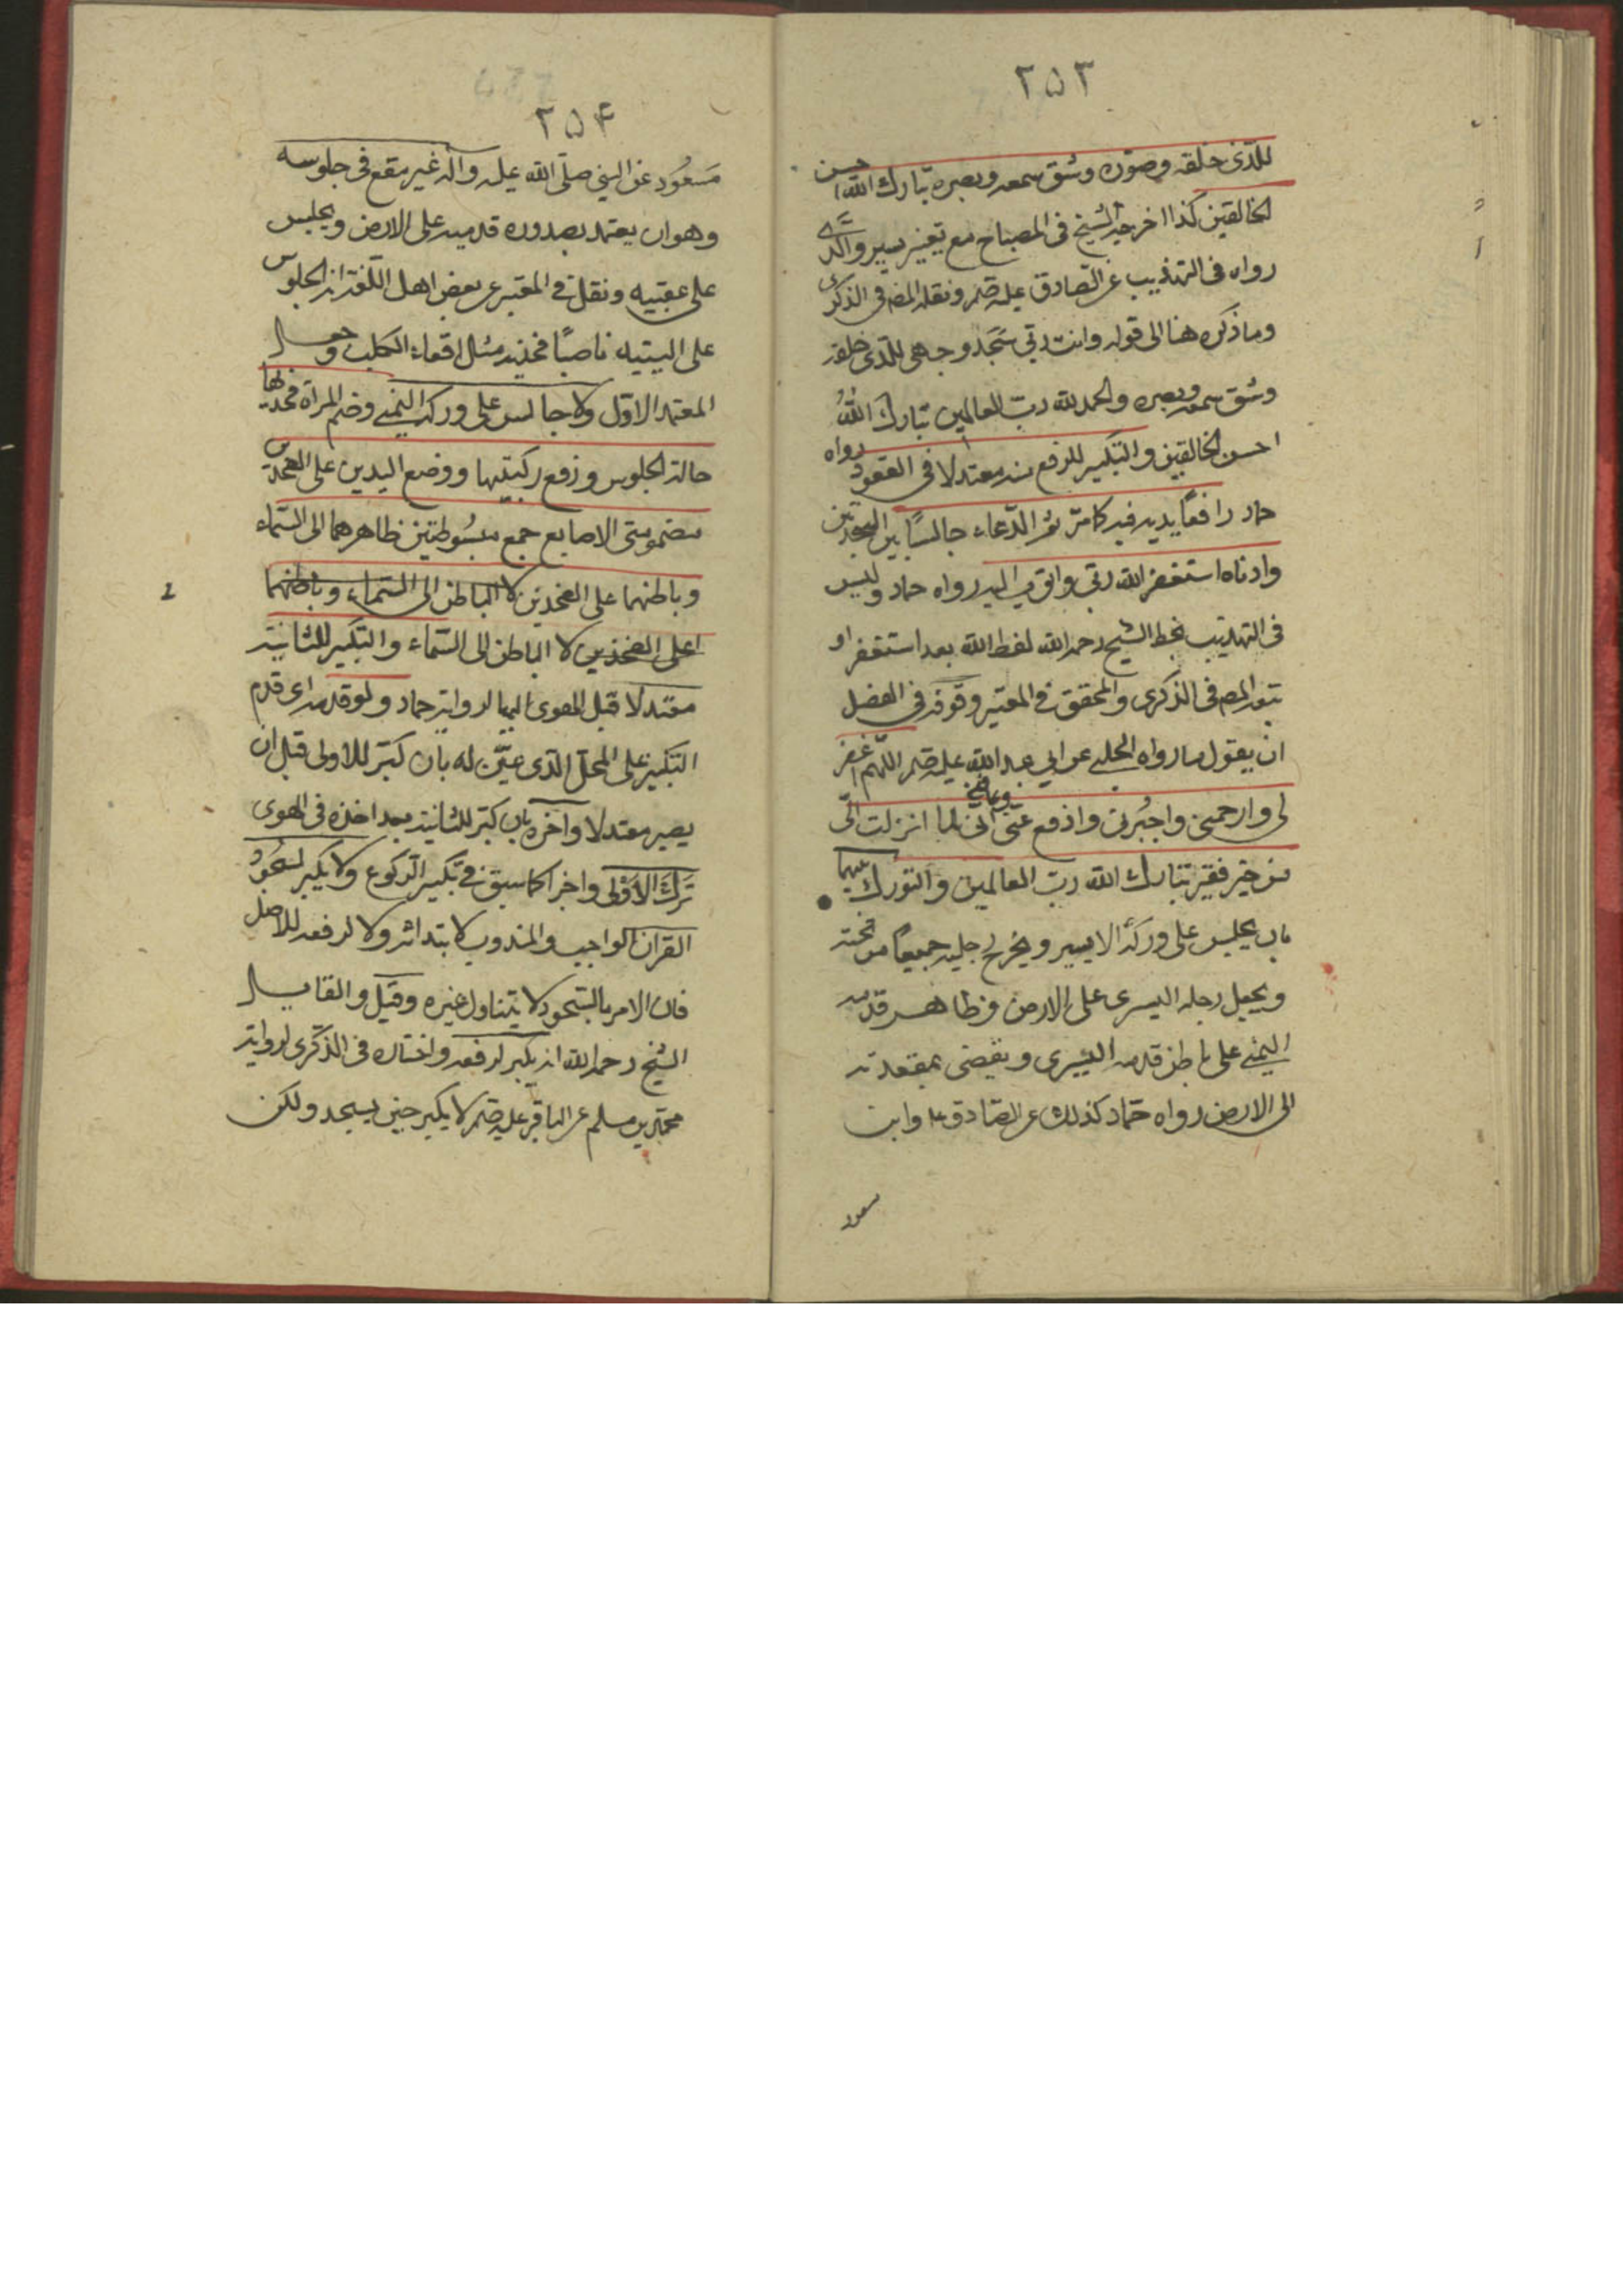 ٢٥٣
للذی خلقه وصوّره وشق سمعه وبصره تبارك الله احسن
الخالقین کذا اخرجه الشیخ فی المصباح مع تغییر یسیر والذی
رواه فی التهذیب عن الصادق علیه ونقله المصـ فی الذکری
وما ذکره هنا الی قوله وانت ربّی سَجَد وجهی للذی خلقه
وشق سمعه وبصره والحمد لله ربّ العالمین تبارَكَ اللهُ
احسن الخالقین والتکبیر للرفع منه معتدلا فی القعود رواه
حماد رافعًا یدیه فیه کما مرّ ثم الدّعاء جالسًا بین السجدتین
وادناه استغفر الله ربّی واتوب الیه رواه حماد ولیس
فی التهذیب بخط الشیخ رحمه الله لفظ الله بعد استغفر او
تبعه المصـ فی الذکری والمحقق فی المعتبر وفوقه فی الفضل
ان یقول ما رواه الحلبی عن ابی عبد الله علیه اللهم اغفر
لی وارحمنی واجْبُرنی وادفع عنّی وعافنی انی لما انزلت الیّ
من خیر فقیر تبارك الله ربّ العالمین والتورك بینهما
بان یجلس علی ورکه الایسر ویخرج رجلیه جمیعًا من تحته
ویجعل رجله الیسری علی الارض وظاهر قدمه
الیمنی علی باطن قدمه الیسری ویفضی بمقعدته
الی الارض رواه حمّاد کذلك عن الصادق ع وابن
مسعود
٢٥۴
مَسعُود عن النبی صلّی الله علیه وآله غیر مقع فی جلوسه
وهو ان یعتمد بصدور قدمیه علی الارض ویجلس
علی عقبیه ونقل فی المعتبر عن بعض اهل اللّغة انه الجلوس
علی الیتیه ناصبًا فخذیه مثل اقعاء الکلب وجعل
المعتمد الاوّل ولا جالس علی ورکه الیمنی وضم المرأة فخذیها
حالة الجلوس ورفع رکبتیها ووضع الیدین علی الفخذین
مضمومتی الاصابع جمع مبسُوطتین ظاهرهما الی السّماء
وباطنهما علی الفخذین لا الباطن الی السّماء وباطنهما
اعلی الفخذین لا الباطن الی السّماء والتکبیر للثانیة
معتدلا قبل الهوی الیها لروایة حماد ولو قدمه ای قدم
التکبیر علی المحلّ الذی عیّن له بان کبّر للاولی قبل ان
یصیر معتدلا وآخره بان کبّر للثانیة بعد اخذه فی الهوی
تَرَكَ الاَوْلی واجزأ کما سبق فی تکبیر الرکوع ولا یکبر لسُجُود
القرآن الواجب والمندوب لا بتدائه ولا لرفعه للاصل
فان الامر بالسّجود لا یتناول غیره وقیل والقایل
الشیخ رحمه الله انه یکبر لرفعه واختاره فی الذکری لروایة
محمّد بن مسلم عن الباقر علیه لا یکبر حین یسجد ولکن